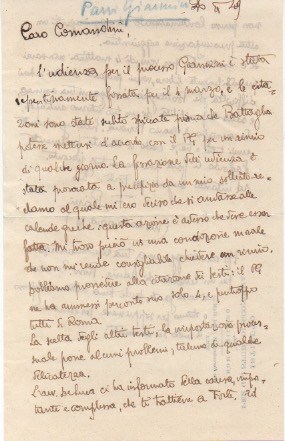 Parri Giannini
Caro Comandini,
L'udienza per il processo Giannini è stata
repentinamente fissata per il 4 marzo, e le cita-
zioni sono state subito spiccate prima che Battaglia
potesse mettersi d'accordo con il PG per un rinvio
di qualche giorno. La fissazione dell'udienza, è
stata provocata a precipizio da un mio sollecito re-
clamo al quale mi ero deciso che si andasse alle
calende greche: questa azione è adesso
fatta. Mi trovo perciò in una condizione morale
che non mi rende consigliabile chiedere un rinvio.
Dobbiamo provvedere alla citazione dei testi: il PG
ne ha ammessi solo 4, e purtroppo
tutti di Roma.
La scelta degli altri testi, la impostazione proces-
suale pone alcuni problemi, taluno di qualche
delicatezza.
ci ha informato della causa, impor-
tante e complessa, che ti trattiene a Forlì. Ed